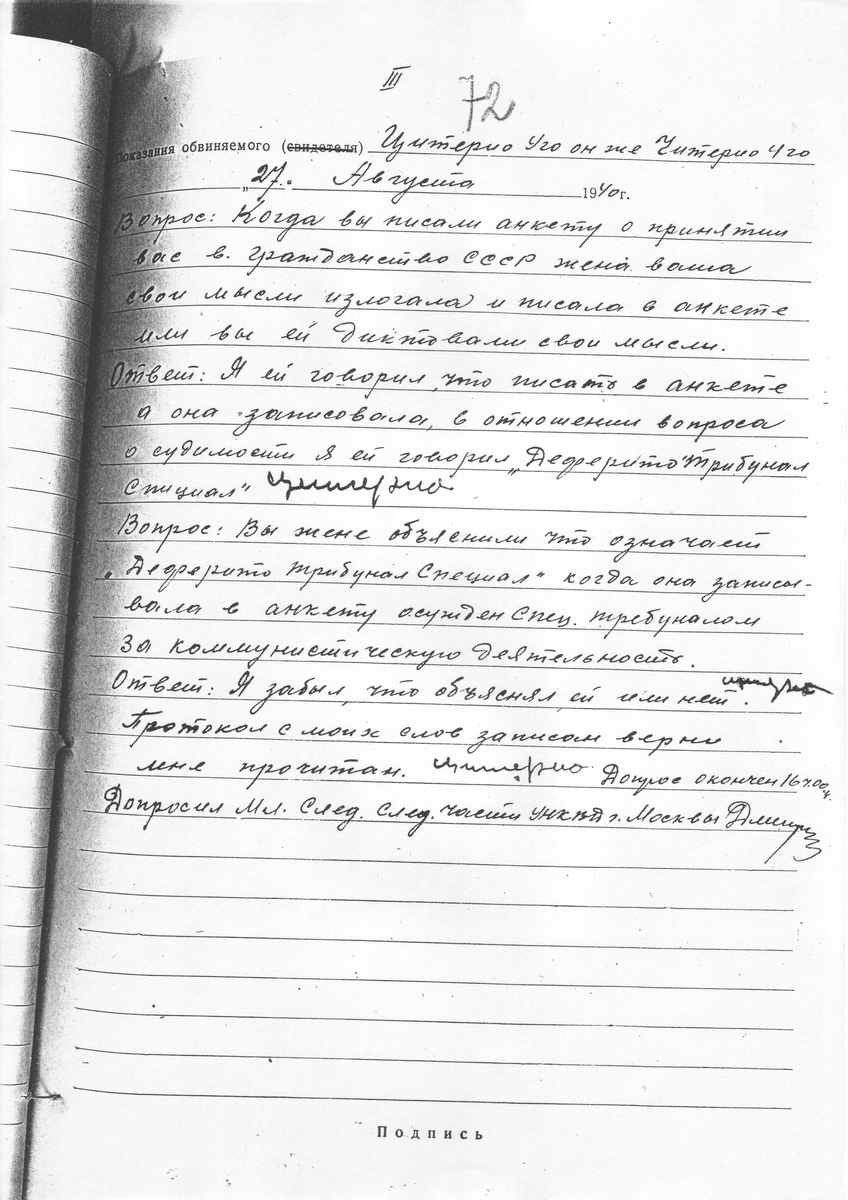 III
72
Показания обвиняемого (свидетеля) Цитерио Уго он же Читерио Уго
„27„ Августа 1940г.
Вопрос: Когда вы писали анкету о принятии
вас в. гражданство СССР жена ваша
свои мысли излогала и писала в анкете
или вы ей диктовали свои мысли.
Ответ: Я ей говорил, что писать в анкете
а она записовала, в отношении вопроса
о судимости я ей говорил „Деферито Трибунал
Специал" Цитерио
Вопрос: Вы жене объяснили что означает
„Деферито трибунал Специал" когда она записы-
вала в анкету осужден Спец. требуналом
за коммунистическую деятельность.
Ответ: Я забыл, что объяснял ей или нет. Цитерио
Протокол с моих слов записан верно
мне прочитан. Цитерио Допрос окончен 16 ч.00м.
Допросил Мл. След. След. части УНКВД г. Москвы
Подпись